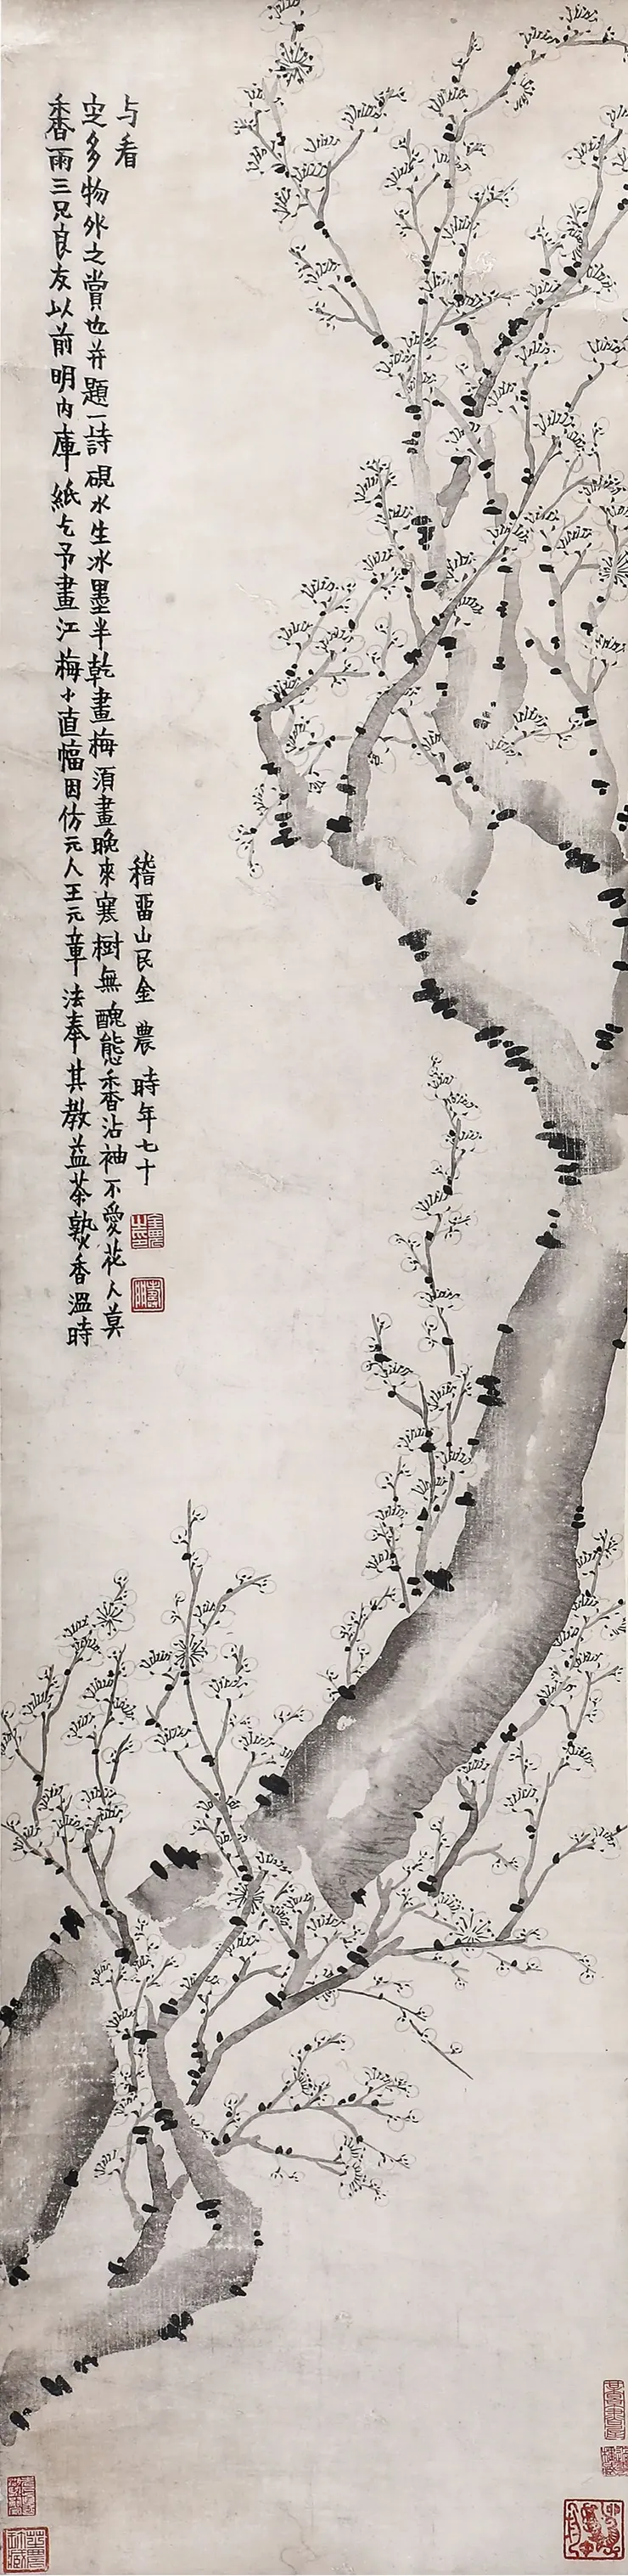 香雨三兄良友以前明内庫紙乞予畫江梅小直幅因仿元人王元章法奉其教益茶熟香溫時
定多物外之賞也并題一詩硯水生冰墨半乾畫梅湏畫晚來寒樹無醜態香沾袖不愛花人莫
与看
稽畱山民金農時年七十